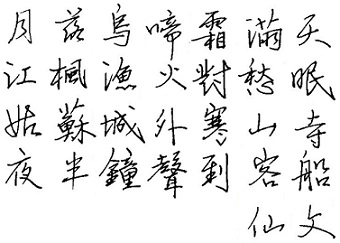 月落烏啼霜滿天
江楓漁火對愁眠
姑蘇城外寒山寺
夜半鐘聲到客船
仙文